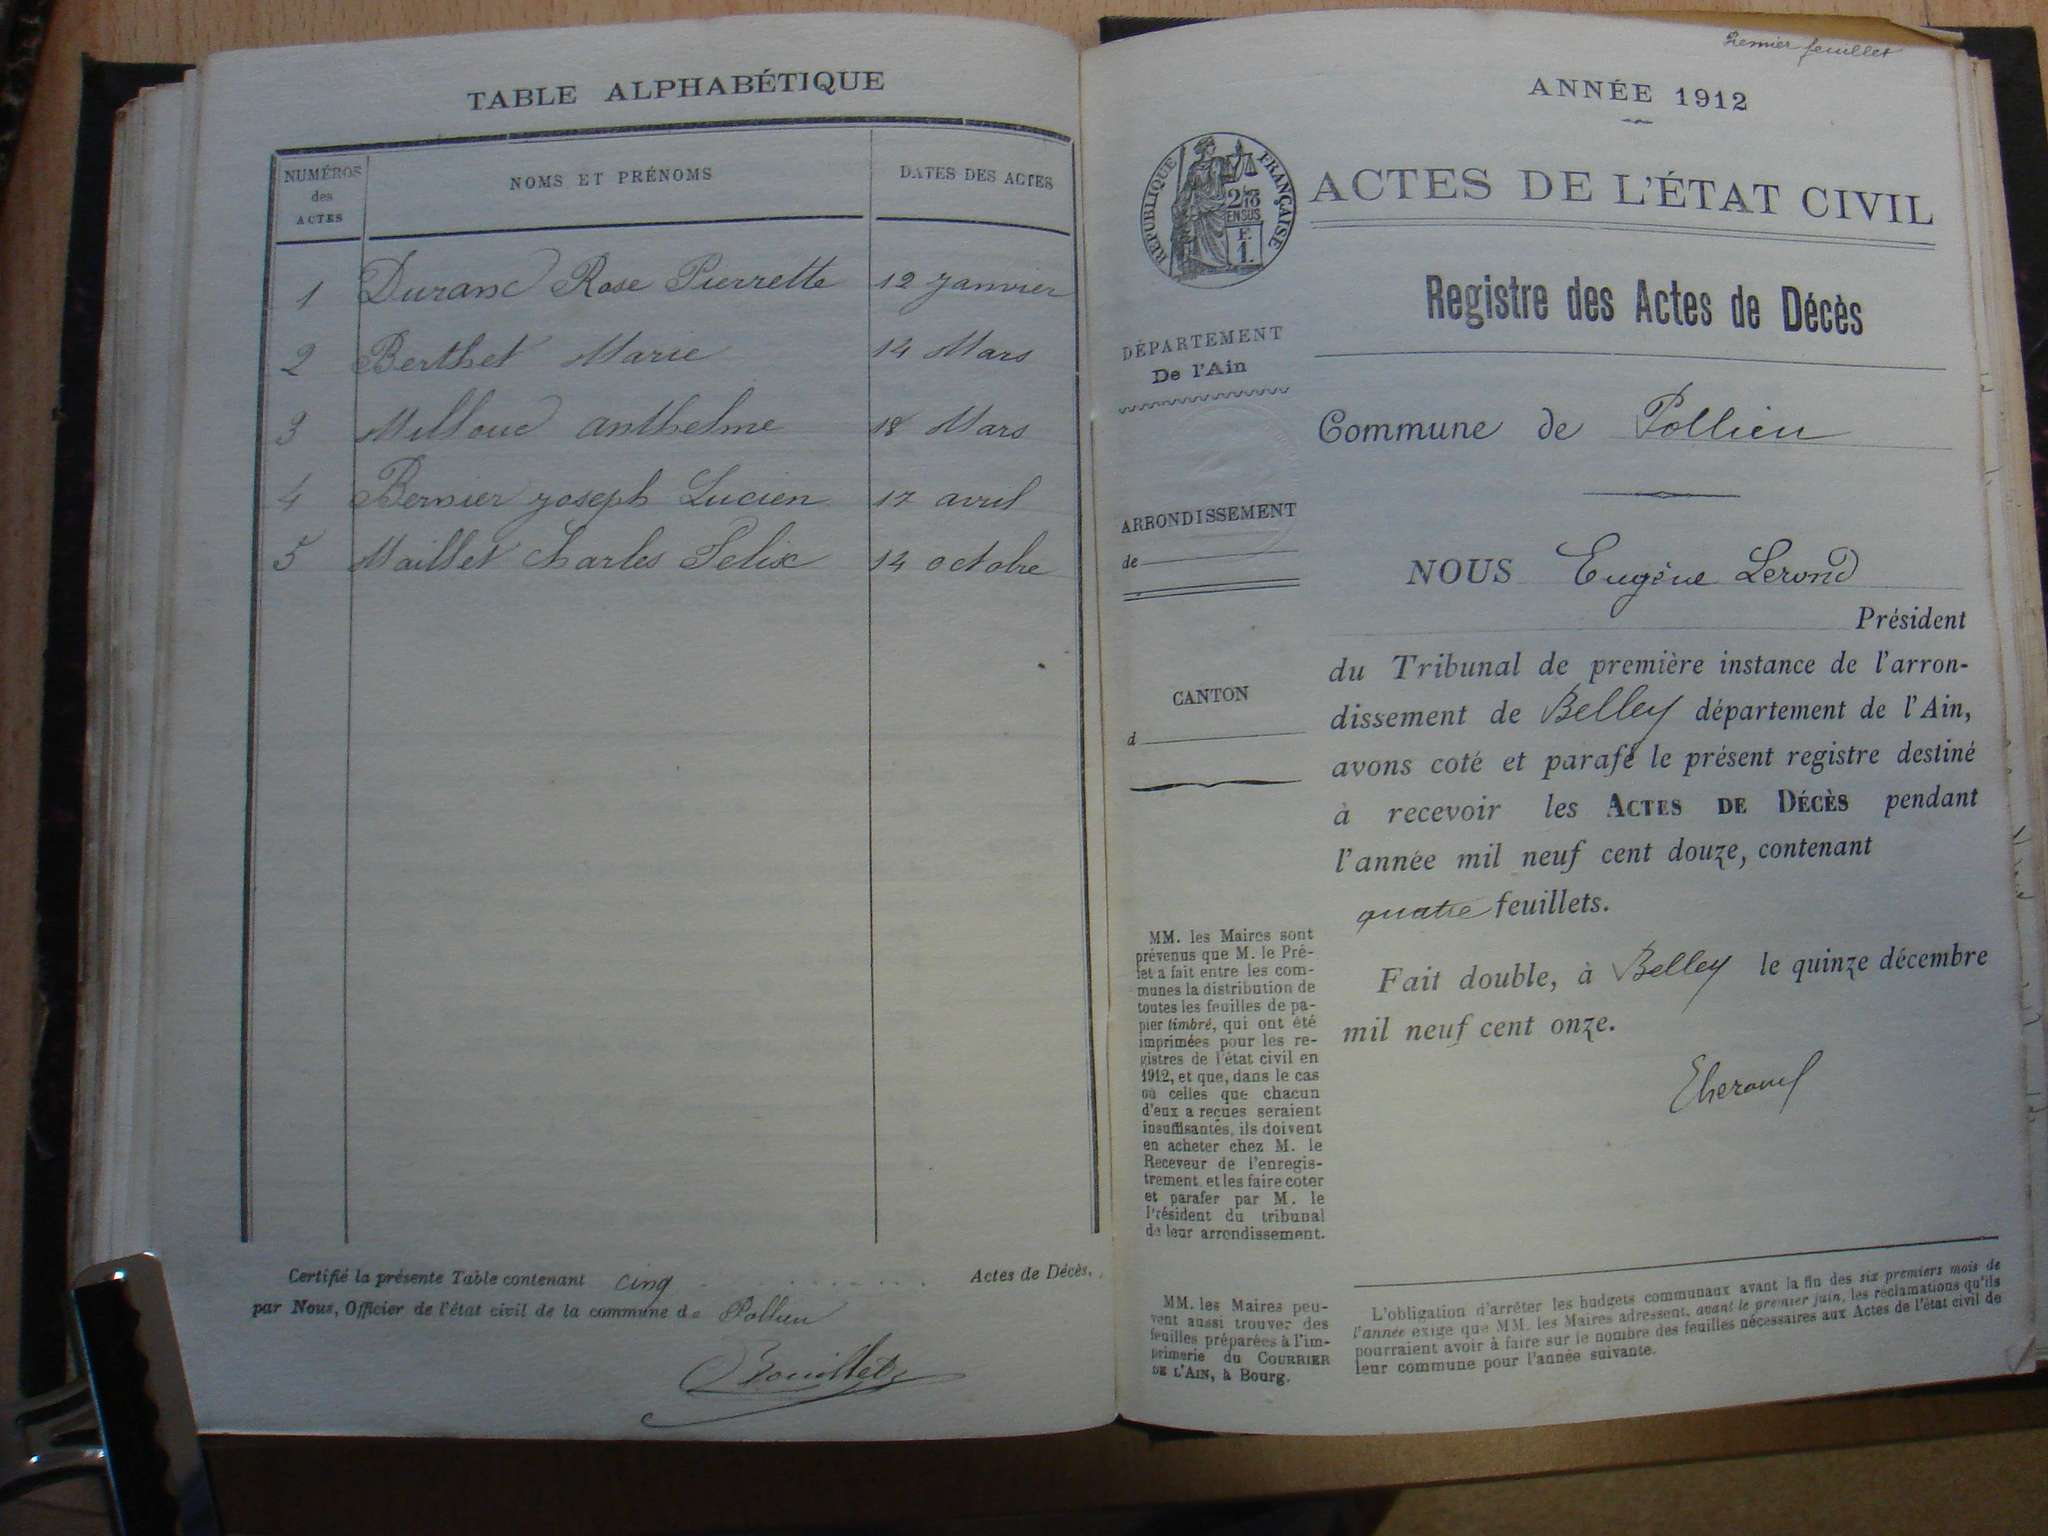 TABLE ALPHABÉTIQUE
NUMÉROS des ACTES
NOMS ET PRÉNOMS
DATES DES ACTES
1 Durand Rose Pierrette 12 Janvier
2 Berthet Marie 14 Mars
3 Milloud anthelme 18 Mars
4 Bernier Joseph Lucien 17 avril
5 Maillet Charles Felix 14 octobre
Certifié la présente Table contenant cinq Actes de Décès,
par Nous, Officier de l'état civil de la commune de Pollieu
Premier feuillet
ANNÉE 1912
RÉPUBLIQUE FRANÇAISE
ACTES DE L'ÉTAT CIVIL
Registre des Actes de Décès
DÉPARTEMENT
De l'Ain
Commune de Pollieu
ARRONDISSEMENT
de
CANTON
d
NOUS Eugène Lerond
Président
du Tribunal de première instance de l'arron-
dissement de Belley département de l'Ain,
avons coté et parafé le présent registre destiné
à recevoir les ACTES DE DÉCÈS pendant
l'année mil neuf cent douze, contenant
quatre feuillets.
Fait double, à Belley le quinze décembre
mil neuf cent onze.
MM. les Maires sont
prévenus que M. le Pré-
fet a fait entre les com-
munes la distribution de
toutes les feuilles de pa-
pier timbré, qui ont été
imprimées pour les re-
gistres de l'état civil en
1912, et que, dans le cas
où celles que chacun
d'eux a reçues seraient
insuffisantes, ils doivent
en acheter chez M. le
Receveur de l'enregis-
trement et les faire coter
et parafer par M. le
Président du tribunal
de leur arrondissement.
MM. les Maires peu-
vent aussi trouver des
feuilles préparées à l'im-
primerie du COURRIER
DE L'AIN, à Bourg.
L'obligation d'arrêter les budgets communaux avant la fin des six premiers mois de
l'année exige que MM. les Maires adressent, avant le premier juin, les réclamations qu'ils
pourraient avoir à faire sur le nombre des feuilles nécessaires aux Actes de l'état civil de
leur commune pour l'année suivante.